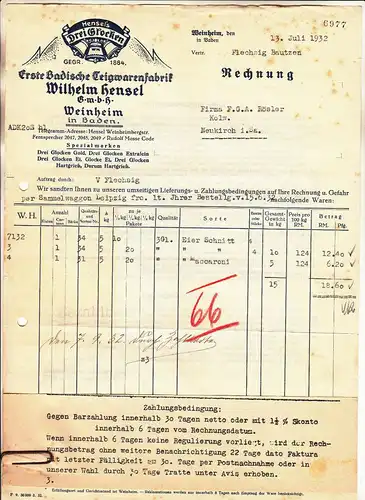 6977
Hensel's
Drei Glocken
GEGR. 1884.
Weinheim, den 13. Juli 1932
in Baden
Vertr. Flechsig Bautzen
Erste Badische Teigwarenfabrik
Wilhelm Hensel
G·m·b·H·
Weinheim
in Baden.
Rechnung
Firma F.G.A. Rösler
Kolw.
Neukirch i.Sa.
Telegramm-Adresse: Hensel Weinheimbergstr.
Fernsprecher 2047, 2048, 2049 / Rudolf Mosse Code
Spezialmarken
Drei Glocken Gold, Drei Glocken Extrafein
Drei Glocken Ei, Glocke Ei, Drei Glocken
Hartgrieß, Durum Hartgrieß.
Auftrag durch: V Flechsig
Wir sandten Ihnen zu unseren umseitigen Lieferungs- u. Zahlungsbedingungen auf Ihre Rechnung u. Gefahr
per Sammelwaggon Leipzig fro. lt. Ihrer Bestellg. v. 15.6.32 nachfolgende Waren:
W. H. Anzahl Qualität Sorte Gesamt-Gewicht in Kg Preis pro 100 kg RM. Betrag RM. Pf.
Pakete
7132 1 34 5 391. Eier Schnitt 10 124 12.40
3 1 34 5 20 " " "
4 1 31 5 20 " Maccaroni 5 124 6.20
15 18.60
66
den 7. 9. 32
Zahlungsbedingung:
Gegen Barzahlung innerhalb 30 Tagen netto oder mit 1½ % Skonto
innerhalb 6 Tagen vom Rechnungsdatum.
Wenn innerhalb 6 Tagen keine Regulierung vorliegt, wird der Rech-
nungsbetrag ohne weitere Benachrichtigung 22 Tage dato Faktura
mit letzter Fälligkeit zu 30. Tage per Postnachnahme oder in
unserer Wahl durch 30 Tage Tratte unter Avis erhoben.
3.